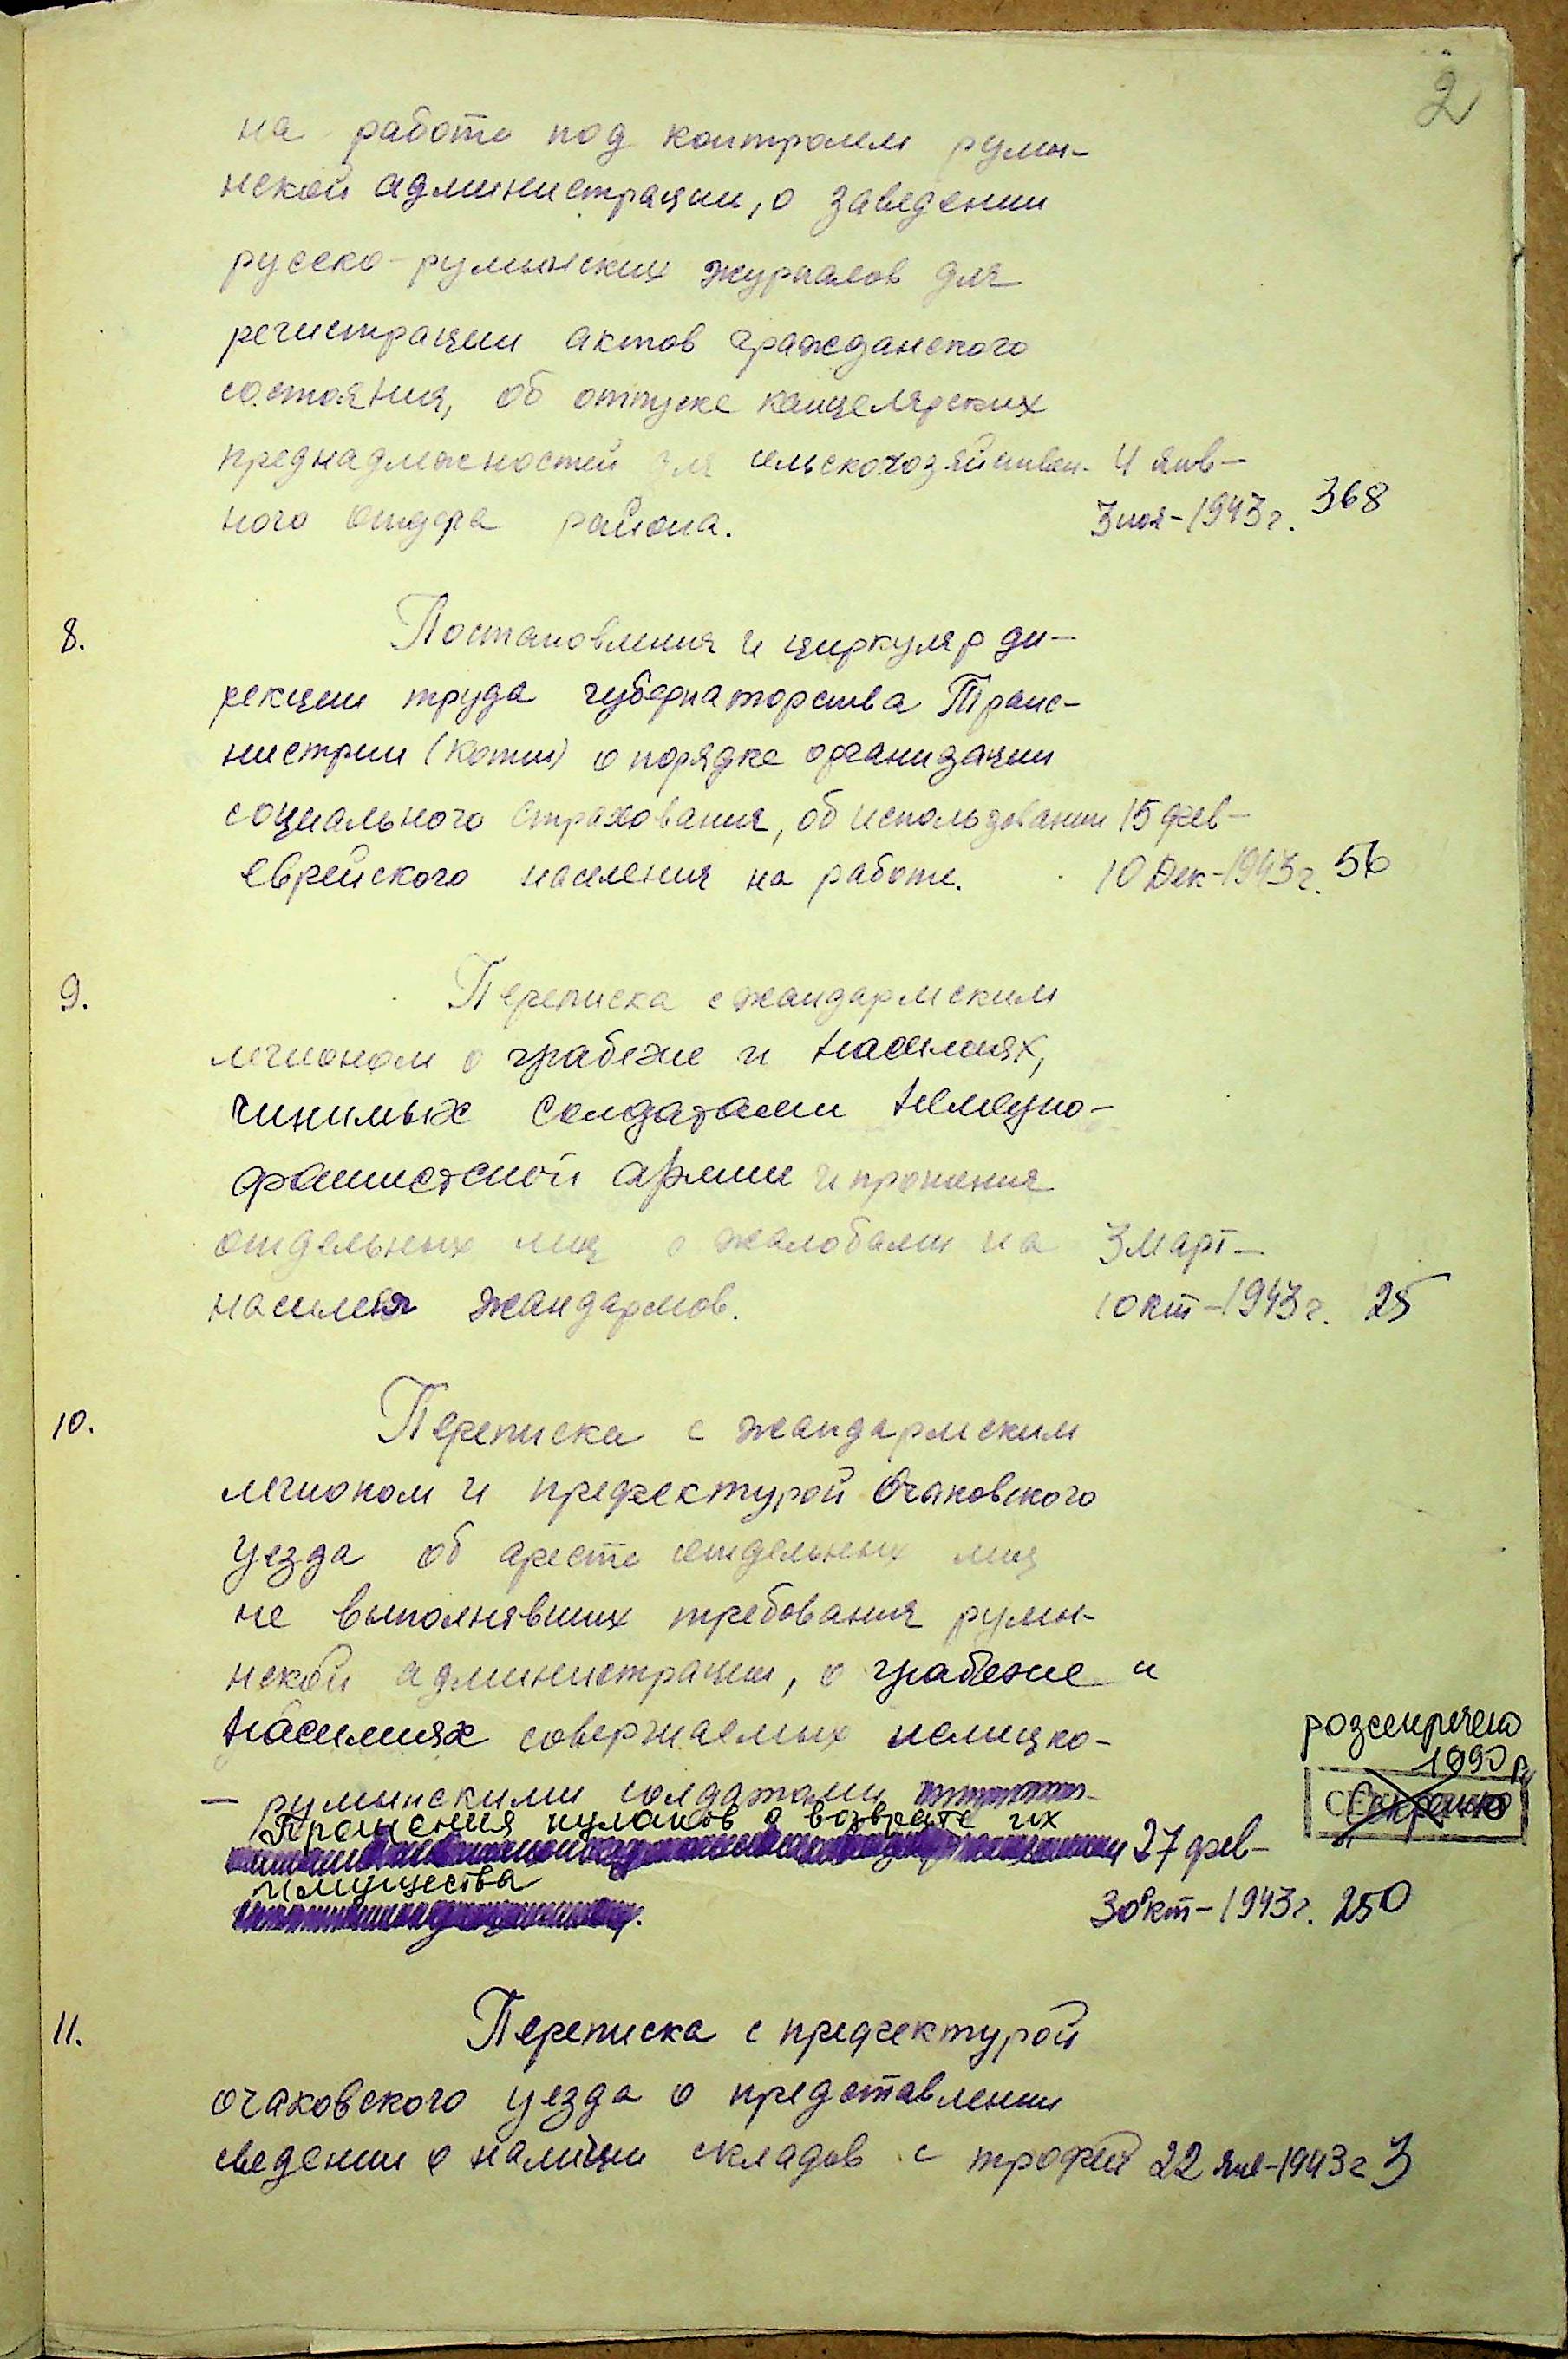 2
на работе под контролем румы-
нской администрации, о заведении
русско-румынских журналов для
регистрации актов гражданского
состояния, об отпуске канцелярских
преднадлежностей для сельскохозяйствен- 4 янв-
ного отдела района. 3 ноя-1943г. 368
8. Постановления и циркуляр ди-
рекции труда губернаторства Транс-
нистрии (копии) о порядке организации
социального страхования, об использовании 15 фев-
еврейского населения на работе. 10 Дек-1943г. 56
9. Переписка с жандармским
легионом о грабеже и насилиях,
чинимых солдатами немецко-
фашистской армии и прошения
отдельных лиц с жалобами на 3 март-
насилия жандармов. 1 окт-1943г. 25
10. Переписка с жандармским
легионом и префектурой Очаковского
уезда об аресте отдельных лиц
не выполнявших требования румы-
нской администрации, о грабеже и
насилиях совершаемых немецко-
- румынскими солдатами
Прошения кулаков о возврате их
27 фев-
имущества
30 окт-1943г. 250
розсекречено
1990 р
Секретно
11. Переписка с префектурой
очаковского уезда о представлении
сведении о наличии складов с трофей 22 янв-1943г 3